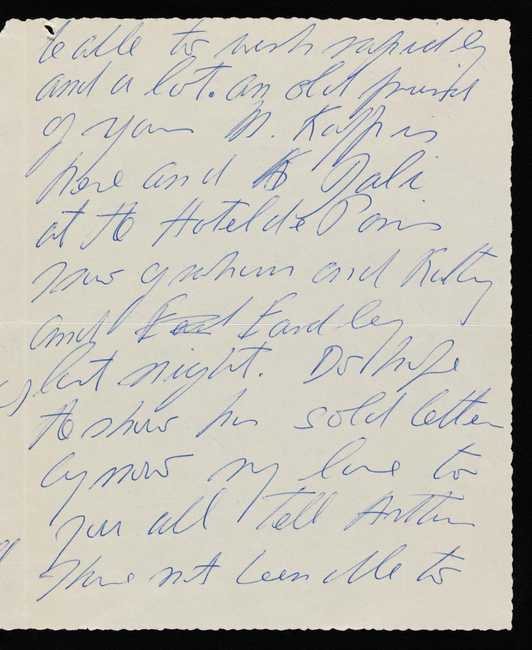 be able to work rapidly
and a lot. an old friend
of yours M. Kalf is
here and Dali
at the Hotel de Paris
saw graham and Kathy
and Eardley
last night. Do hope
the show has sold better
by now my love to
you all Tell Arthur
I have not been able to